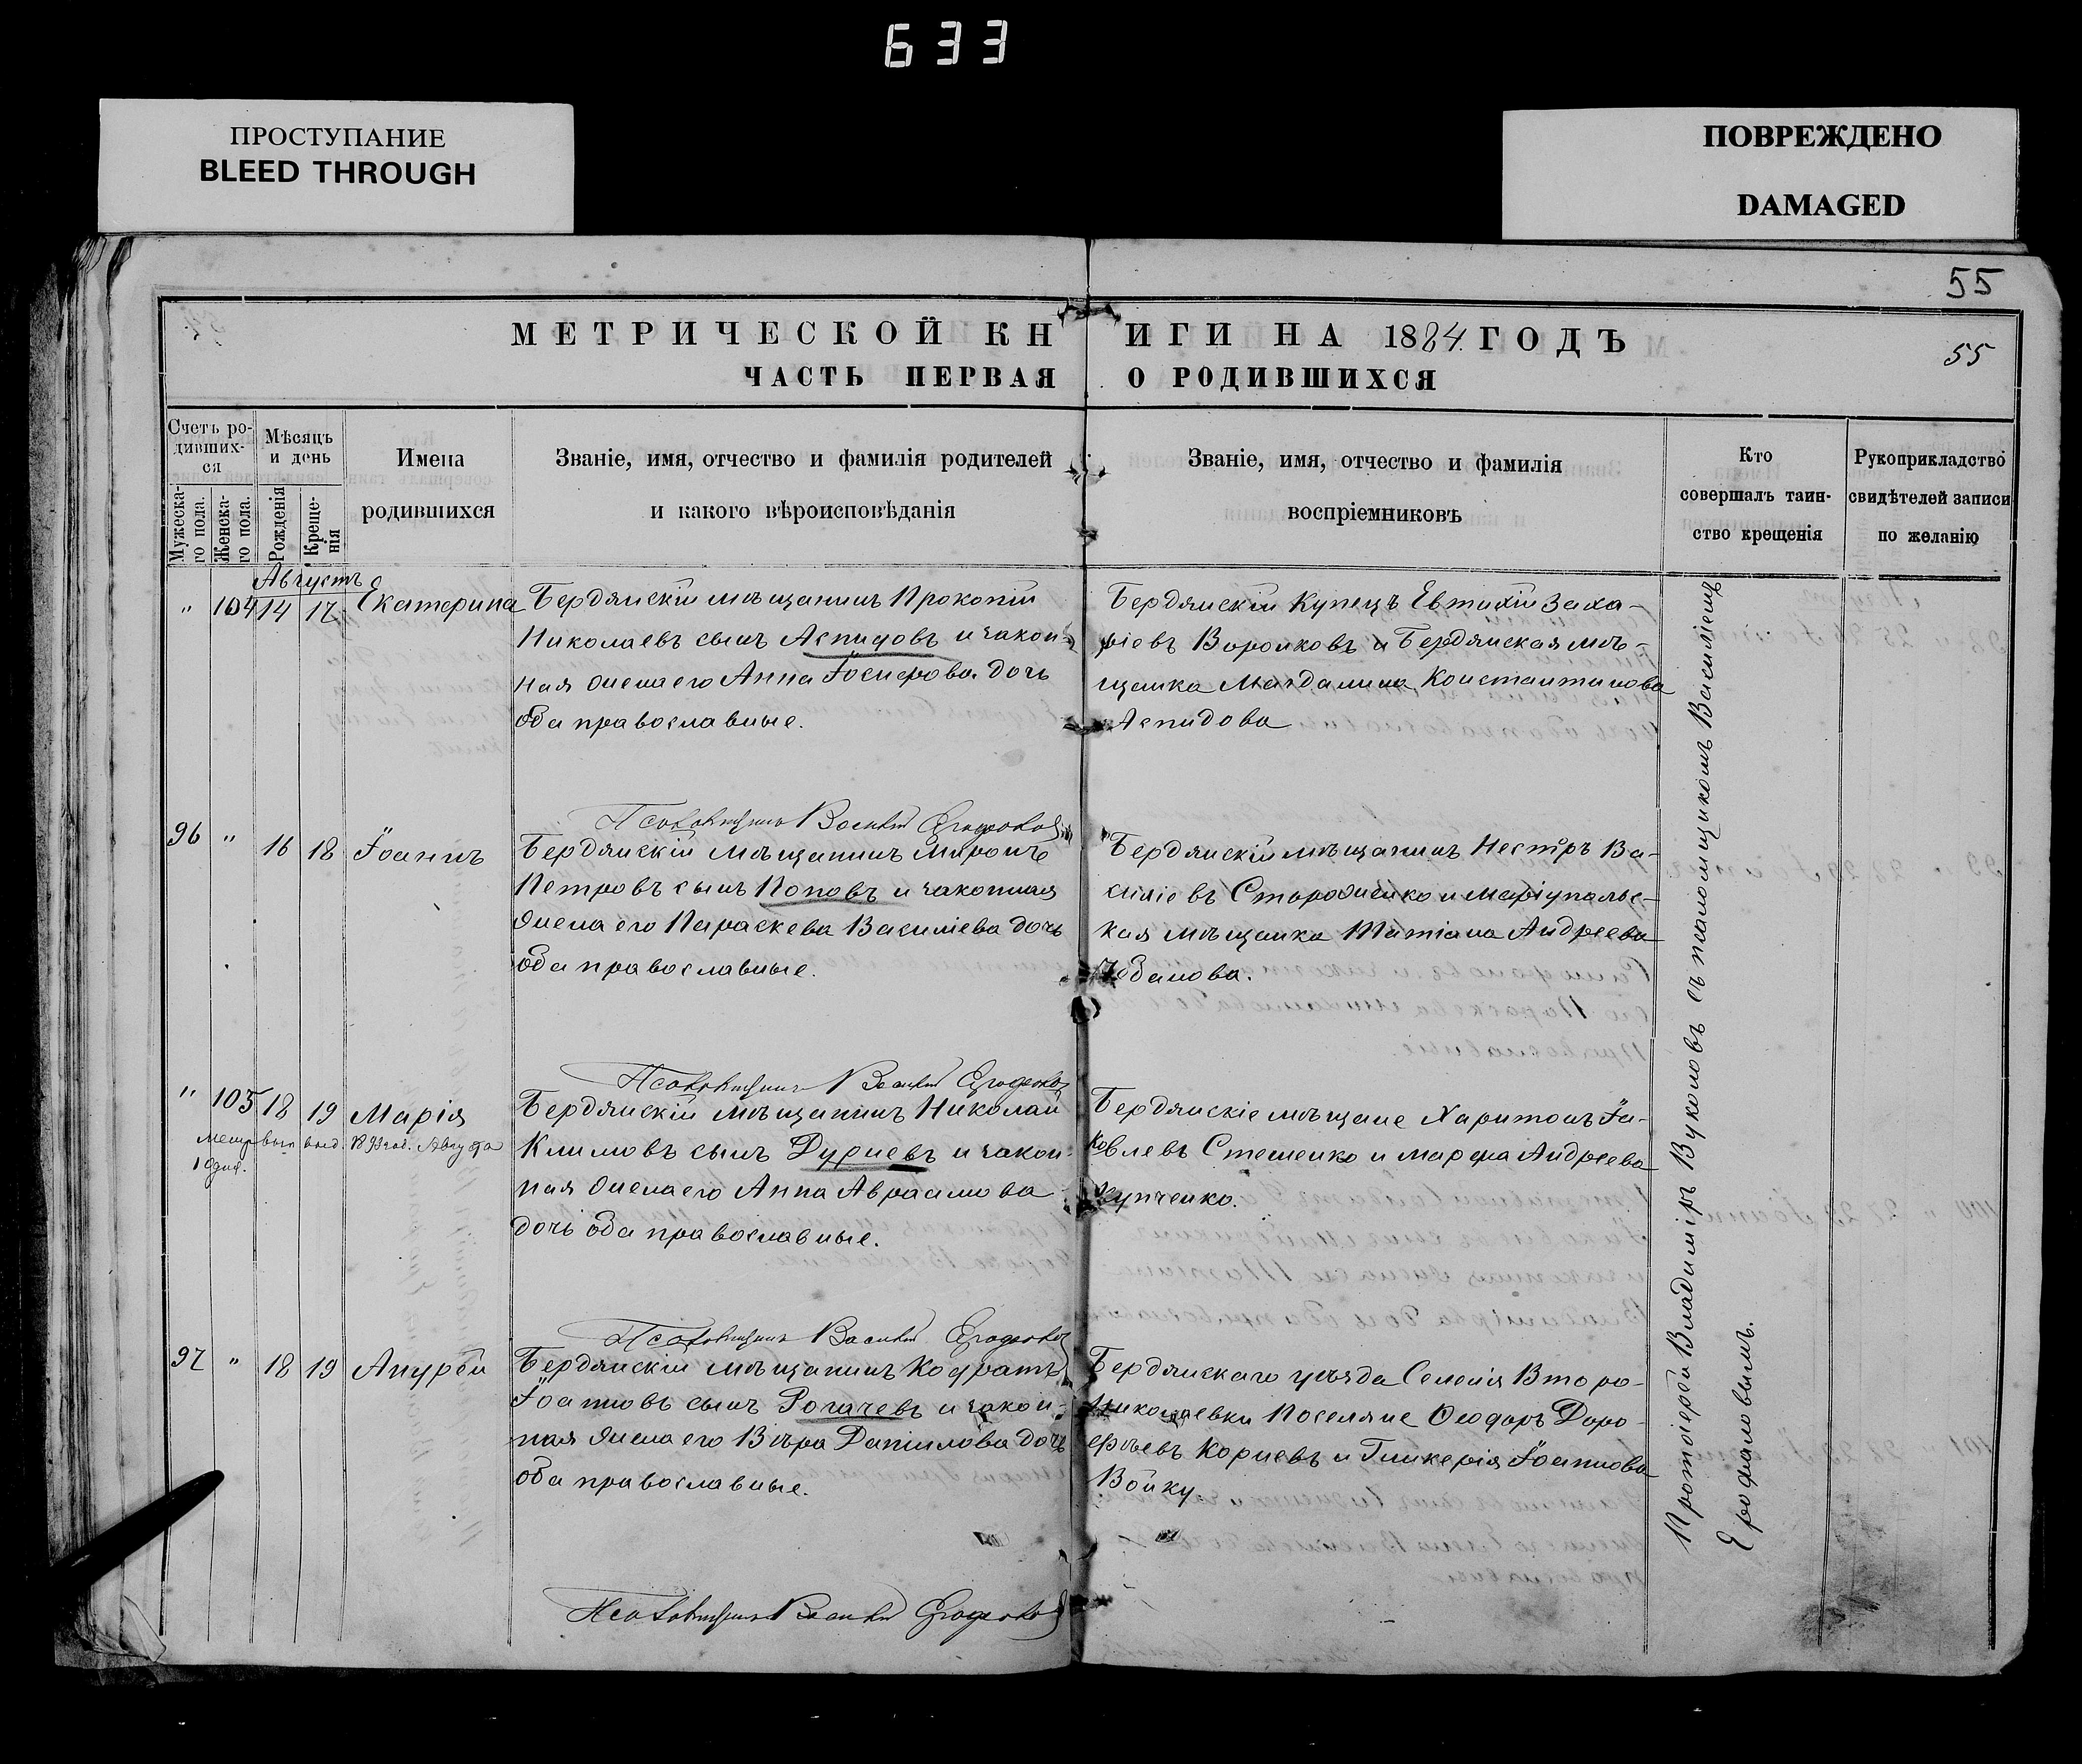 633
ПРОСТУПАНИЕ
BLEED THROUGH
ПОВРЕЖДЕНО
DAMAGED
55
МЕТРИЧЕСКОЙ КНИГИ НА 1884 ГОДЪ
55
ЧАСТЬ ПЕРВАЯ О РОДИВШИХСЯ
Счетъ ро-
дивших-
ся
Мужеска-
го пола.
Женска-
го пола.
Мѣсяцъ
и день
Рожденія
Креще-
нія
Имена
родившихся
Званіе, имя, отчество и фамилія родителей
и какого вѣроисповѣданія
Званіе, имя, отчество и фамилія
воспріемниковъ
Кто
совершалъ таин-
ство крещенія
Рукоприкладство
свидѣтелей записи
по желанію
Августъ
" 104 14 17 Екатерина
Бердянскій мѣщанинъ Прокопій
Николаевъ сынъ Аспидовъ и закон-
ная жена его Анна Іосифова дочь
оба православные.
Бердянскій Купецъ Евтихій Заха-
ріевъ Воронковъ и Бердянская мѣ-
щанка Магдалина Константинова
Аспидова
Псаломщикъ Василій
96 " 16 18 Іоаннъ
Бердянскій мѣщанинъ Миронъ
Петровъ сынъ Поповъ и законная
жена его Параскева Василіева дочь
оба православные.
Бердянскій мѣщанинъ Несторъ Ва-
силіевъ Стороженко и Маріупольс-
кая мѣщанка Татіана Андреева
Псаломщикъ Василій
" 105 18 19 Марія
Бердянскій мѣщанинъ Николай
Климовъ сынъ Дуриевъ и закон-
ная жена его Анна Авраамова
дочь оба православные.
Бердянскіе мѣщане Харитонъ Іа-
ковлевъ Стешенко и Марфа Андреева
Купченко.
Псаломщикъ Василій
97 " 18 19 Ануфрій
Бердянскій мѣщанинъ Кодратъ
Іоанновъ сынъ Рогачевъ и закон-
ная жена его Вѣра Даніилова дочь
оба православные.
Бердянскаго уѣзда Селенія Второ-
Николаевки Поселяне Ѳеодоръ Доро-
феевъ Корневъ и Гликерія Іоаннова
Войку
Псаломщикъ Василій
Протоіерей Владиміръ Вуколовъ съ псаломщикомъ Василіемъ